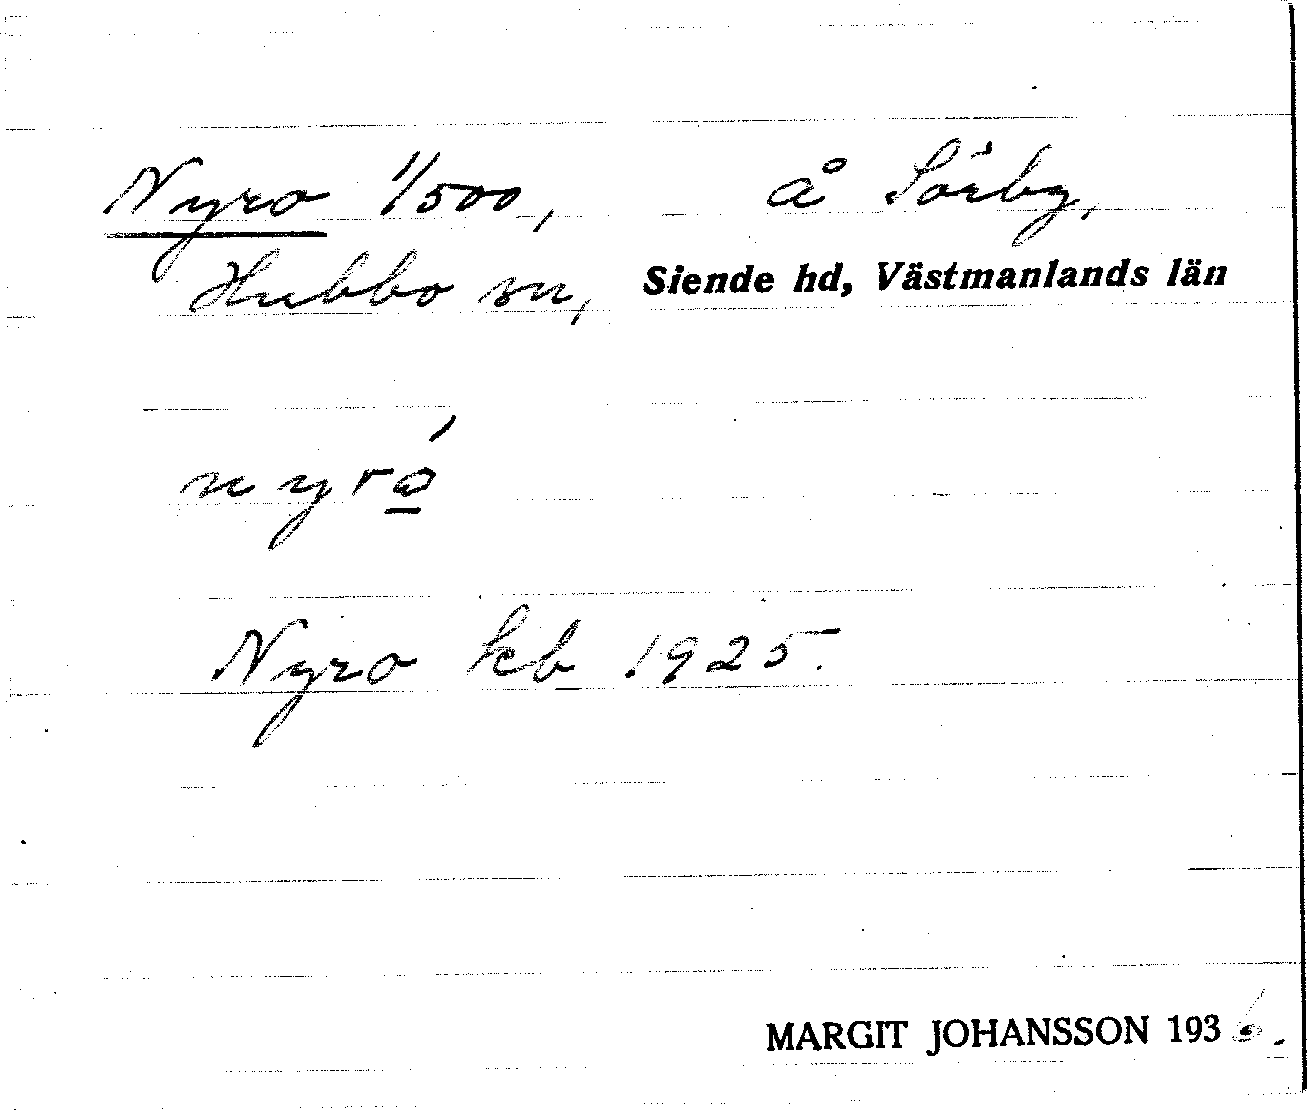 Nyro 1/500, å Sörby,
Hubbo sn, Siende hd, Västmanlands län
nyrò̱́
Nyro kb 1925.
MARGIT JOHANSSON 1936.